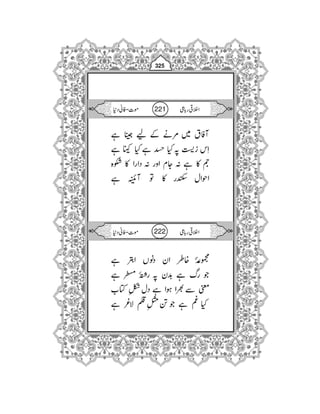 325
اخلاقی رباعی 221 موت-فانی دنیا
آفاق میں مرنے کے لیے جینا ہے
اِس زیست پہ کیا حسد ہے کیا کینا ہے
جم کا ہے نہ جام اور نہ دارا کا شکوہ
احوالِ سکندر کا تو آئینہ ہے
اخلاقی رباعی 222 موت-فانی دنیا
مجموعۂ خاطر ان دنوں ابتر ہے
جو رگ ہے بدن پہ رشتۂ مسطر ہے
معنی سے بھرا ہوا ہے دل شکلِ کتاب
کیا غم ہے جو تن مثلِ قلم لاغر ہے